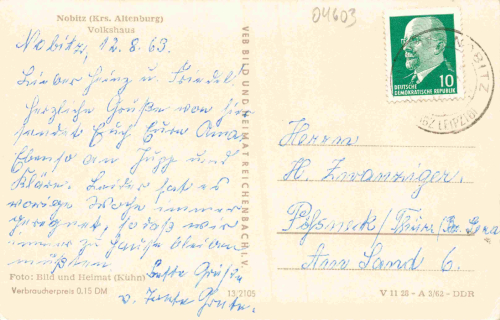 Nobitz (Krs. Altenburg)
Volkshaus
04603
Nobitz, 12.8.63.
Lieber Heinz u. Friedel.
Herzliche Grüße von hier
sendet Euch Eure Oma
Ebenso an Jupp und
Klärn. Leider hat es
vorige Woche immer
geregnet, sodaß wir
immer zu Hause bleiben
mußten.
Beste Grüße
v. Tante Grete.
Foto: Bild und Heimat (Kühn)
Verbraucherpreis 0,15 DM
13/2105
VEB BILD UND HEIMAT REICHENBACH I. V.
10
DEUTSCHE
DEMOKRATISCHE REPUBLIK
NOBITZ
Herrn
H. Zwanziger.
Pößneck / Thür. / Bz. Gera
Am Sand 6.
V 11 28 - A 3/63 - DDR